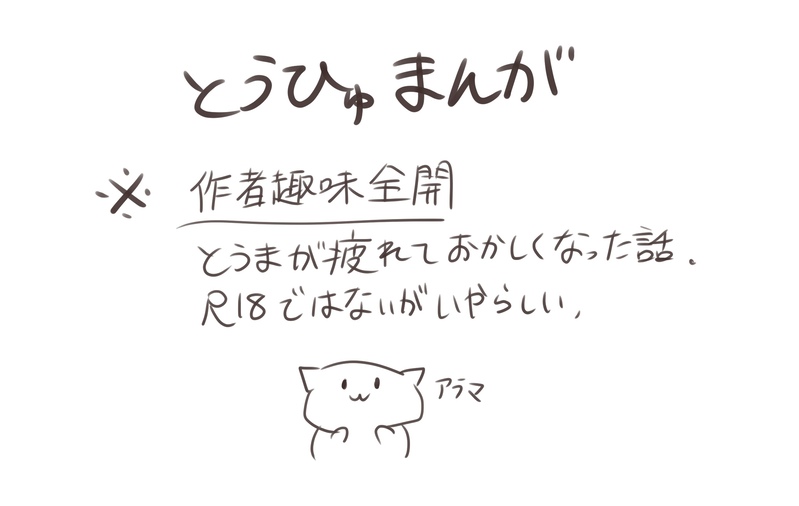 とうひゅまんが
※ 作者趣味全開
とうまが疲れておかしくなった話.
R18ではないがいやらしい,
アラマ